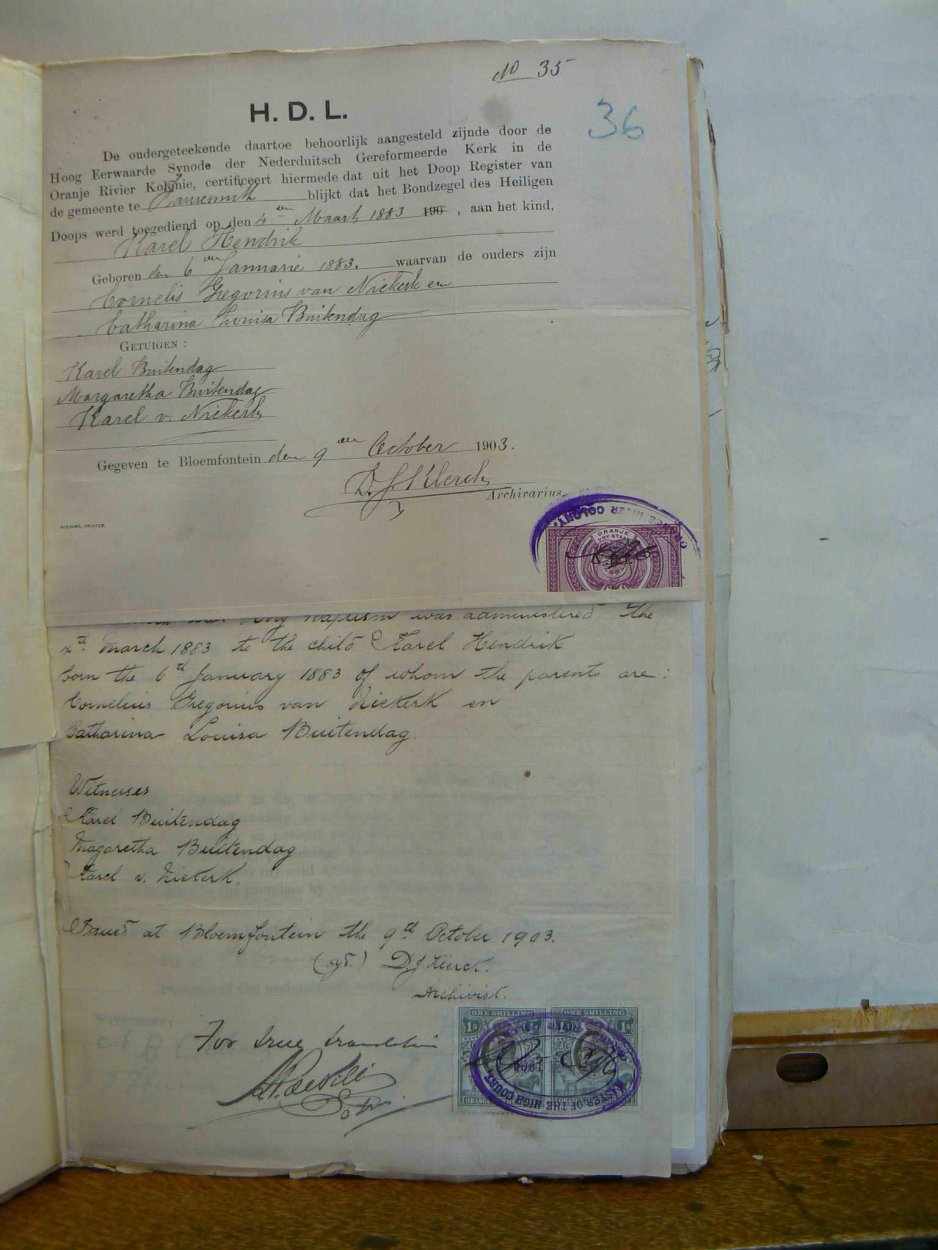 No 35
36
H. D. L.
De ondergeteekende daartoe behoorlijk aangesteld zijnde door de
Hoog Eerwaarde Synode der Nederduitsch Gereformeerde Kerk in de
Oranje Rivier Kolonie, certificeert hiermede dat uit het Doop Register van
de gemeente te blijkt dat het Bondzegel des Heiligen
Doops werd toegediend op den 4en Maart 1883 190 , aan het kind,
Karel Hendrik
Geboren den 6en Januarie 1883. waarvan de ouders zijn
Cornelis Gregorius van Niekerk en
Catharina Louisa Buitendag
GETUIGEN :
Karel Buitendag
Margaretha Buitendag
Karel v. Niekerk
Gegeven te Bloemfontein den 9en October 1903.
D. J. Klerck
Archivarius.
ORANGE RIVER COLONY
ORANJE
Holy Baptism was administered the
March 1883 to the child Karel Hendrik
born the 6th January 1883 of whom the parents are :
Cornelius Gregorius van Niekerk en
Catharina Louisa Buitendag.
Witnesses
Karel Buitendag
Magaretha Buitendag
Karel v. Niekerk.
Issued at Bloemfontein the 9th October 1903.
(sgd.) D J Klerck.
Archivist.
For true translation
ONE SHILLING ONE SHILLING
MASTER OF THE HIGH COURT